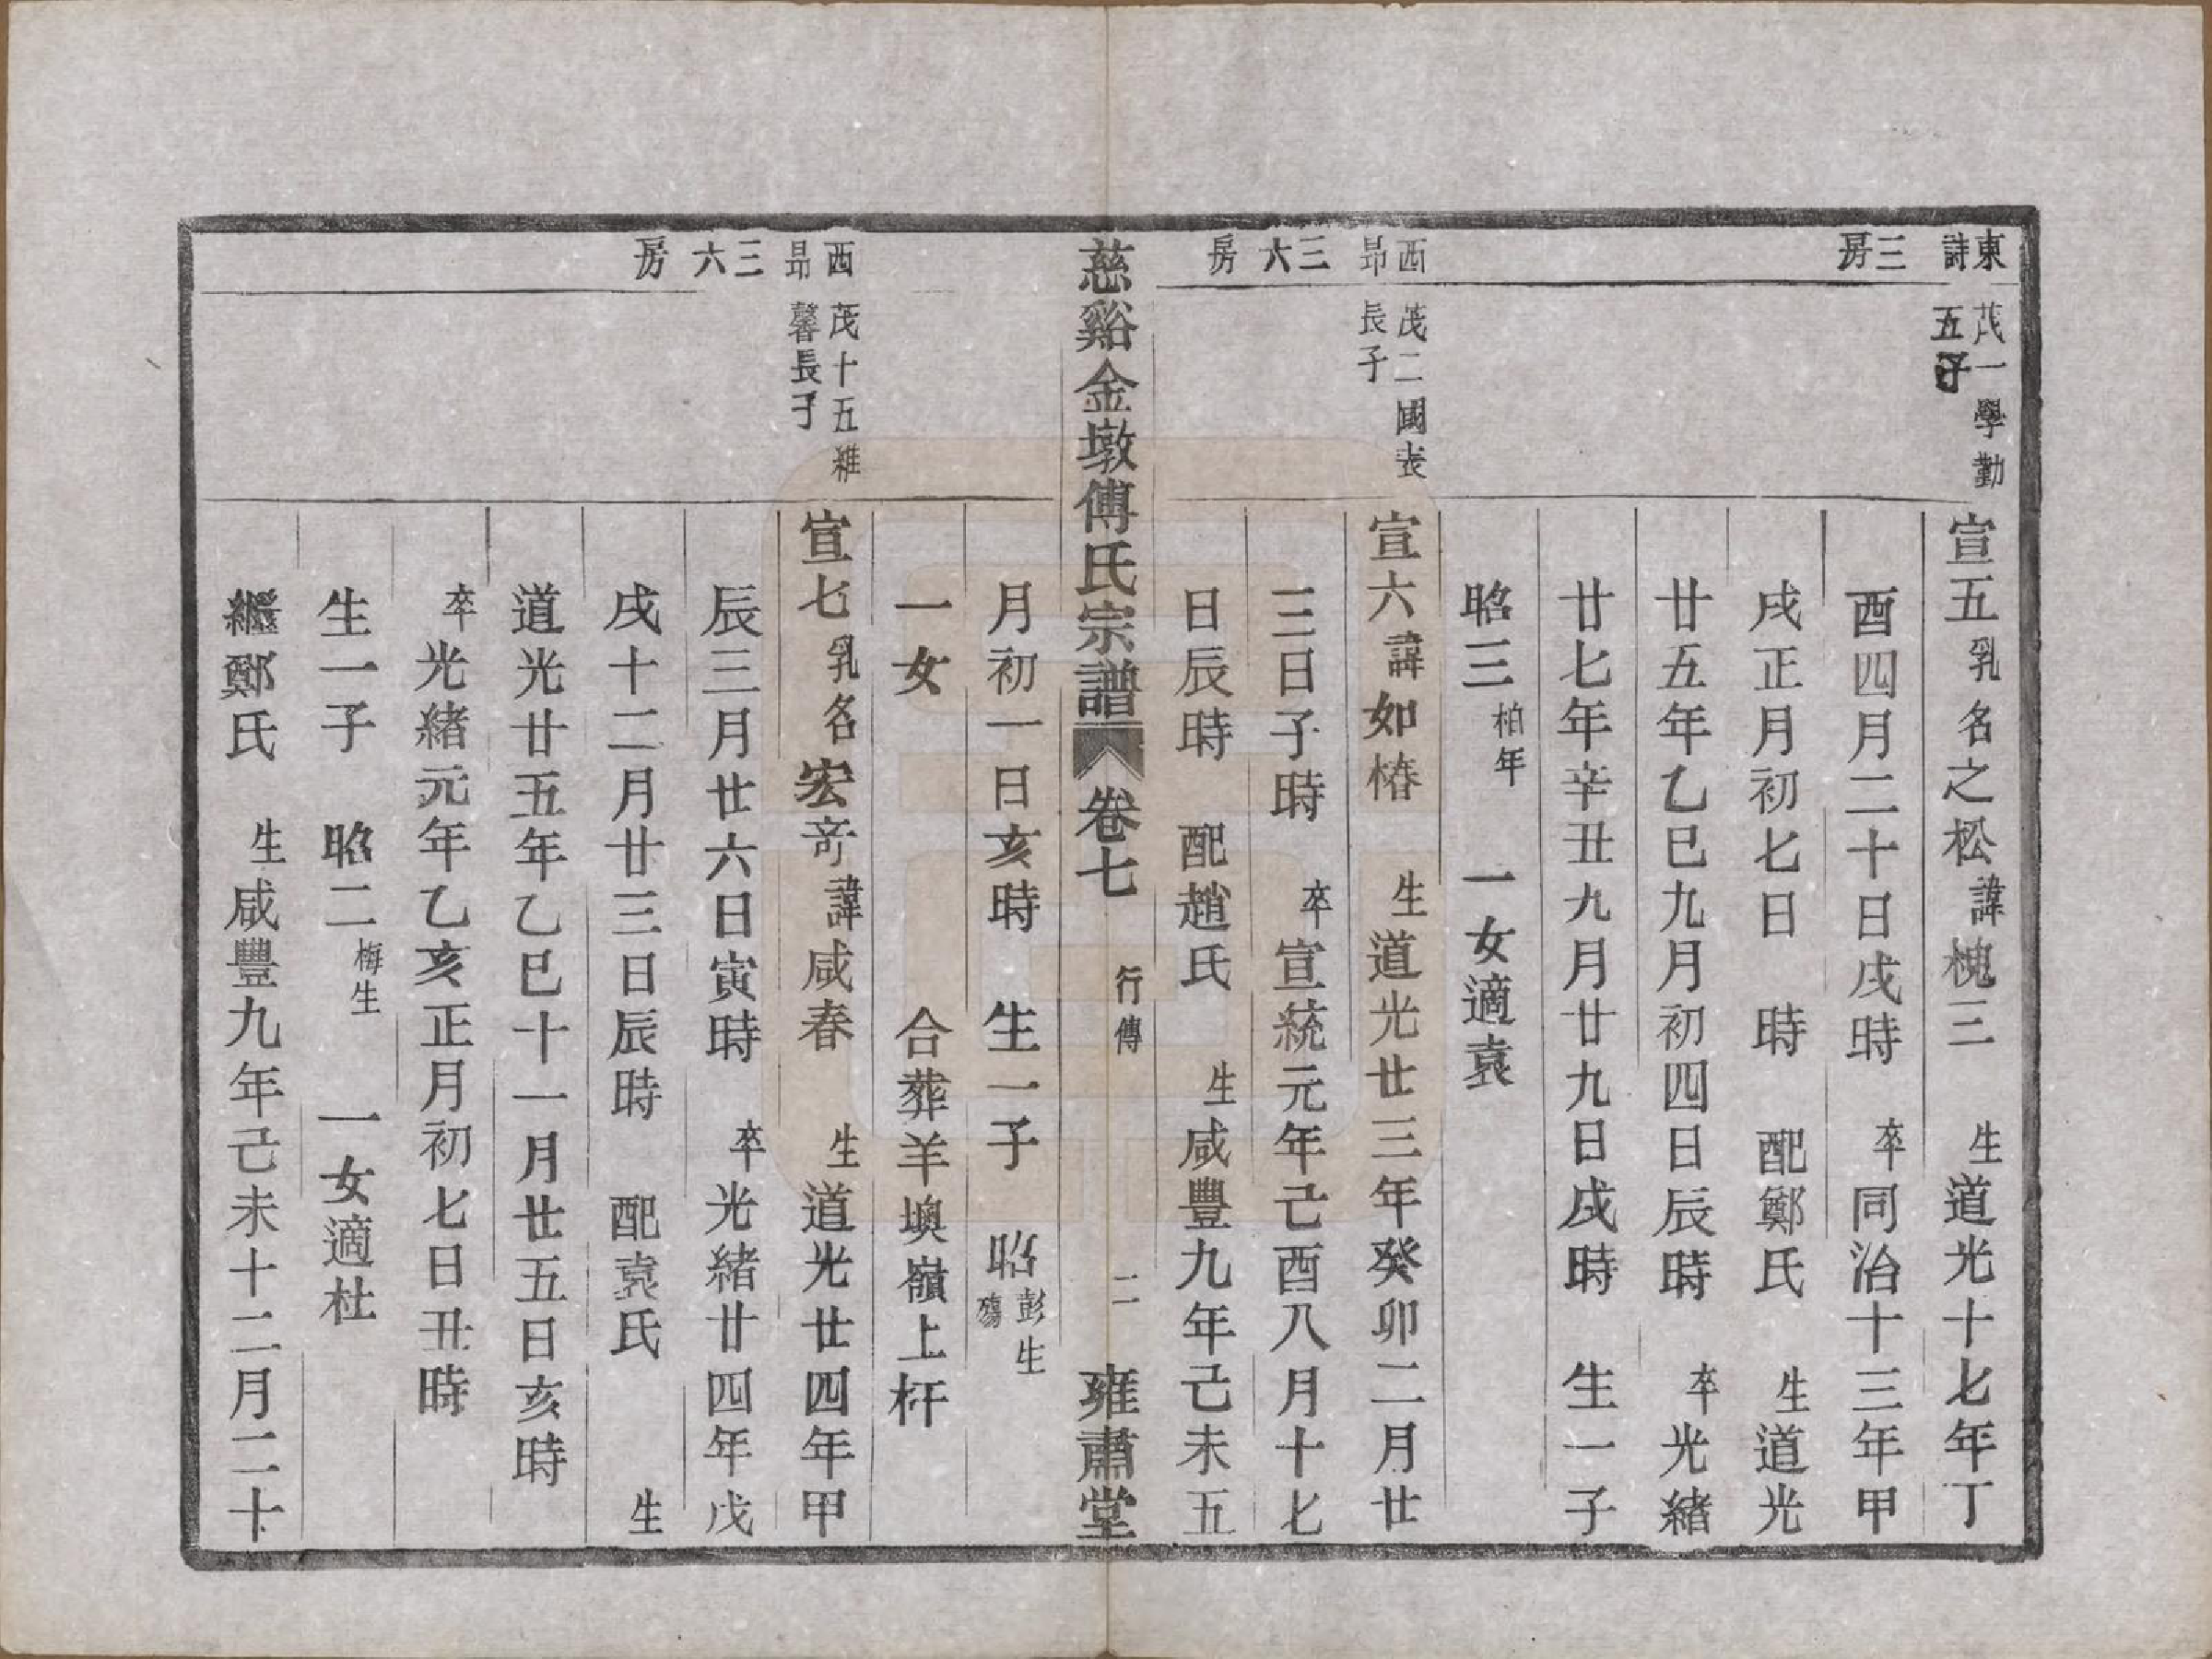 東詩
三房
茂一學勤
五子
宣五乳名之松諱槐三　生道光十七年丁
酉四月二十日戌時　卒同治十三年甲
戌正月初七日　時　配鄭氏　生道光
廿五年乙巳九月初四日辰時　卒光緒
廿七年辛丑九月廿九日戌時　生一子
昭三柏年　一女適袁
西昻
三六房
茂二國表
長子
宣六諱如椿　生道光廿三年癸卯二月廿
三日子時　卒宣統元年己酉八月十七
日辰時　配趙氏　生咸豐九年己未五
慈谿金墩傅氏宗譜　卷七　行傳　二　雍肅堂
月初一日亥時　生一子　昭彭生殤
一女　合葬羊墺嶺上杆
西昻
三六房
茂十五維
馨長子
宣七乳名宏奇諱咸春　生道光廿四年甲
辰三月廿六日寅時　卒光緒廿四年戊
戌十二月廿三日辰時　配袁氏　生
道光廿五年乙巳十一月廿五日亥時
卒光緒元年乙亥正月初七日丑時
生一子　昭二梅生　一女適杜
繼鄭氏　生咸豐九年己未十二月二十